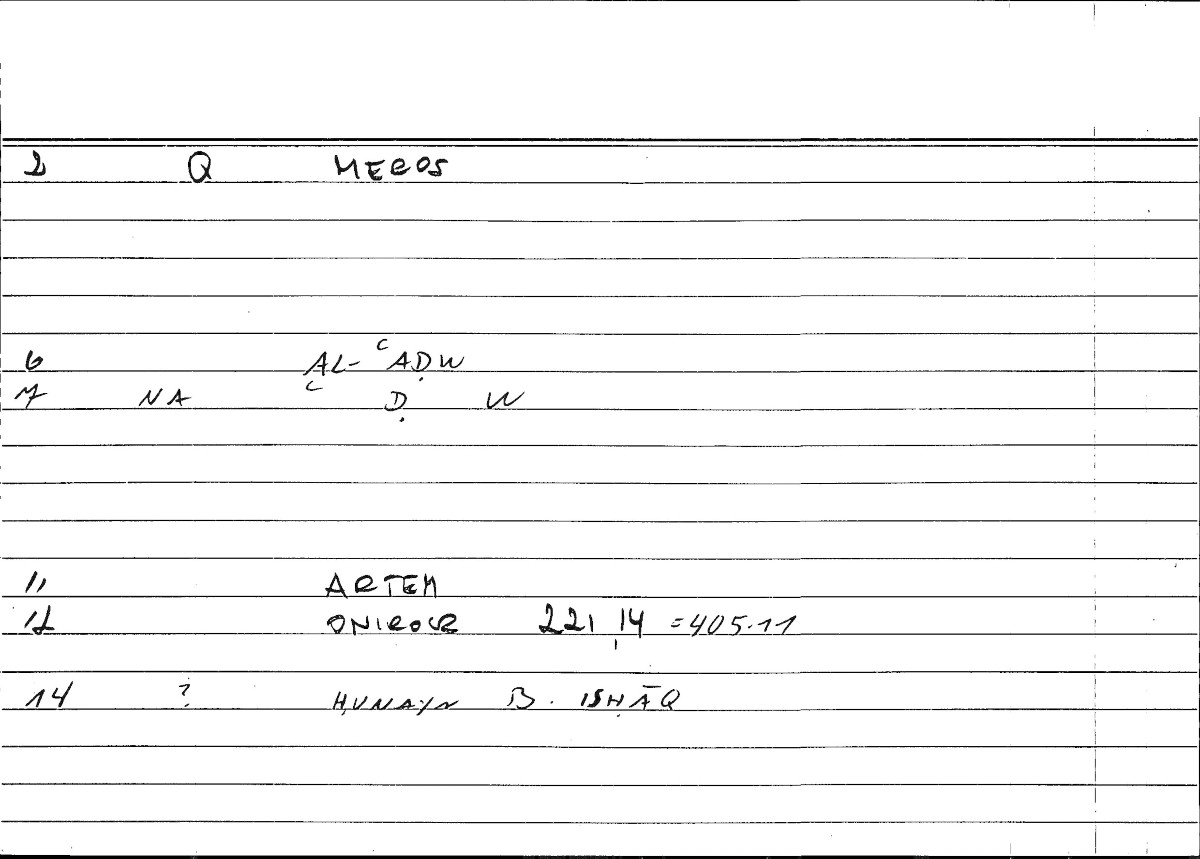 2 Q MEROS
6 AL-ʿAḌW
7 NA ʿ Ḍ W
11 ARTEM
12 ONIROCR 221,14 =405.11
14 ? ḤUNAYN B. ISḤĀQ